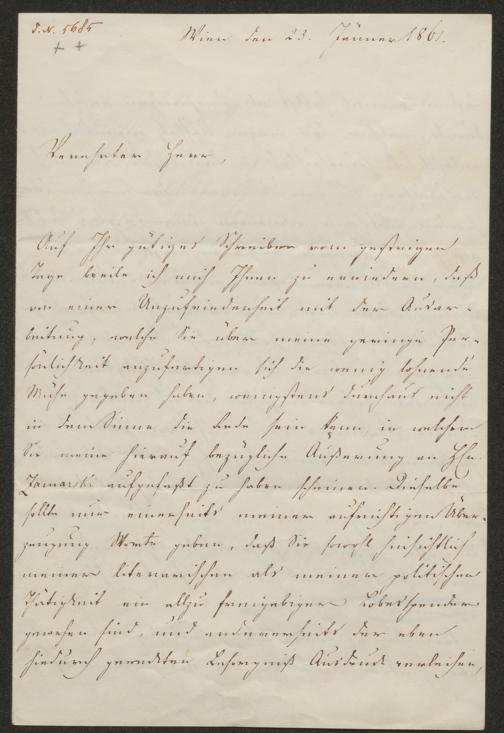 I. N. 5685
Wien den 23. Jänner 1861.
Verehrter Herr,
Auf Ihr gütiges Schreiben vom gestrigen
Tage beeile ich mich Ihnen zu erwiedern, daß
von einer Unzufriedenheit mit der Ausar-
beitung, welche Sie über meine geringe Per-
sönlichkeit anzufertigen sich die wenig lohnende
Mühe gegeben haben, wenigstens durchaus nicht
in dem Sinne die Rede sein kann, in welchem
Sie meine hierauf bezügliche Äußerung an H
Tomaski aufgefaßt zu haben scheinen. Dieselbe
sollte nur einerseits meiner aufrichtigen Über-
zeugung Worte geben, daß Sie sowohl hinsichtlich
meiner literarischen als meiner politischen
Thätigkeit ein allzu freigebiger Lobesspender
gewesen sind, und andererseits der eben
hiedurch geweckten Besorgniß Ausdruck verleihen,